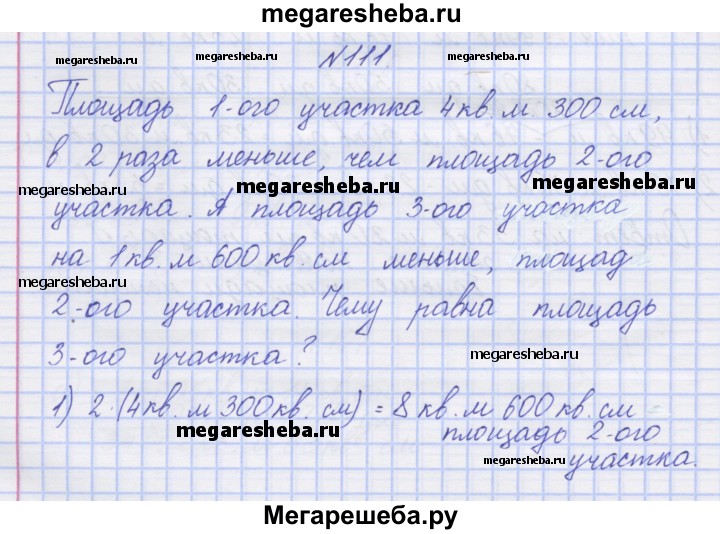 megaresheba.ru
megaresheba.ru №111. megaresheba.ru
megaresheba.ru
Площадь 1-ого участка 4кв.м 300 см,
в 2 раза меньше, чем площадь 2-ого
megaresheba.ru megaresheba.ru megaresheba.ru
участка. А площадь 3-ого участка
на 1кв.м 600кв.см меньше, площад
megaresheba.ru megaresheba.ru
2-ого участка. Чему равна площадь
3-ого участка? megaresheba.ru
1) 2·(4кв.м 300кв.см) = 8кв.м 600кв.см
megaresheba.ru площадь 2-ого
megaresheba.ru участка.
Мегарешеба.ру